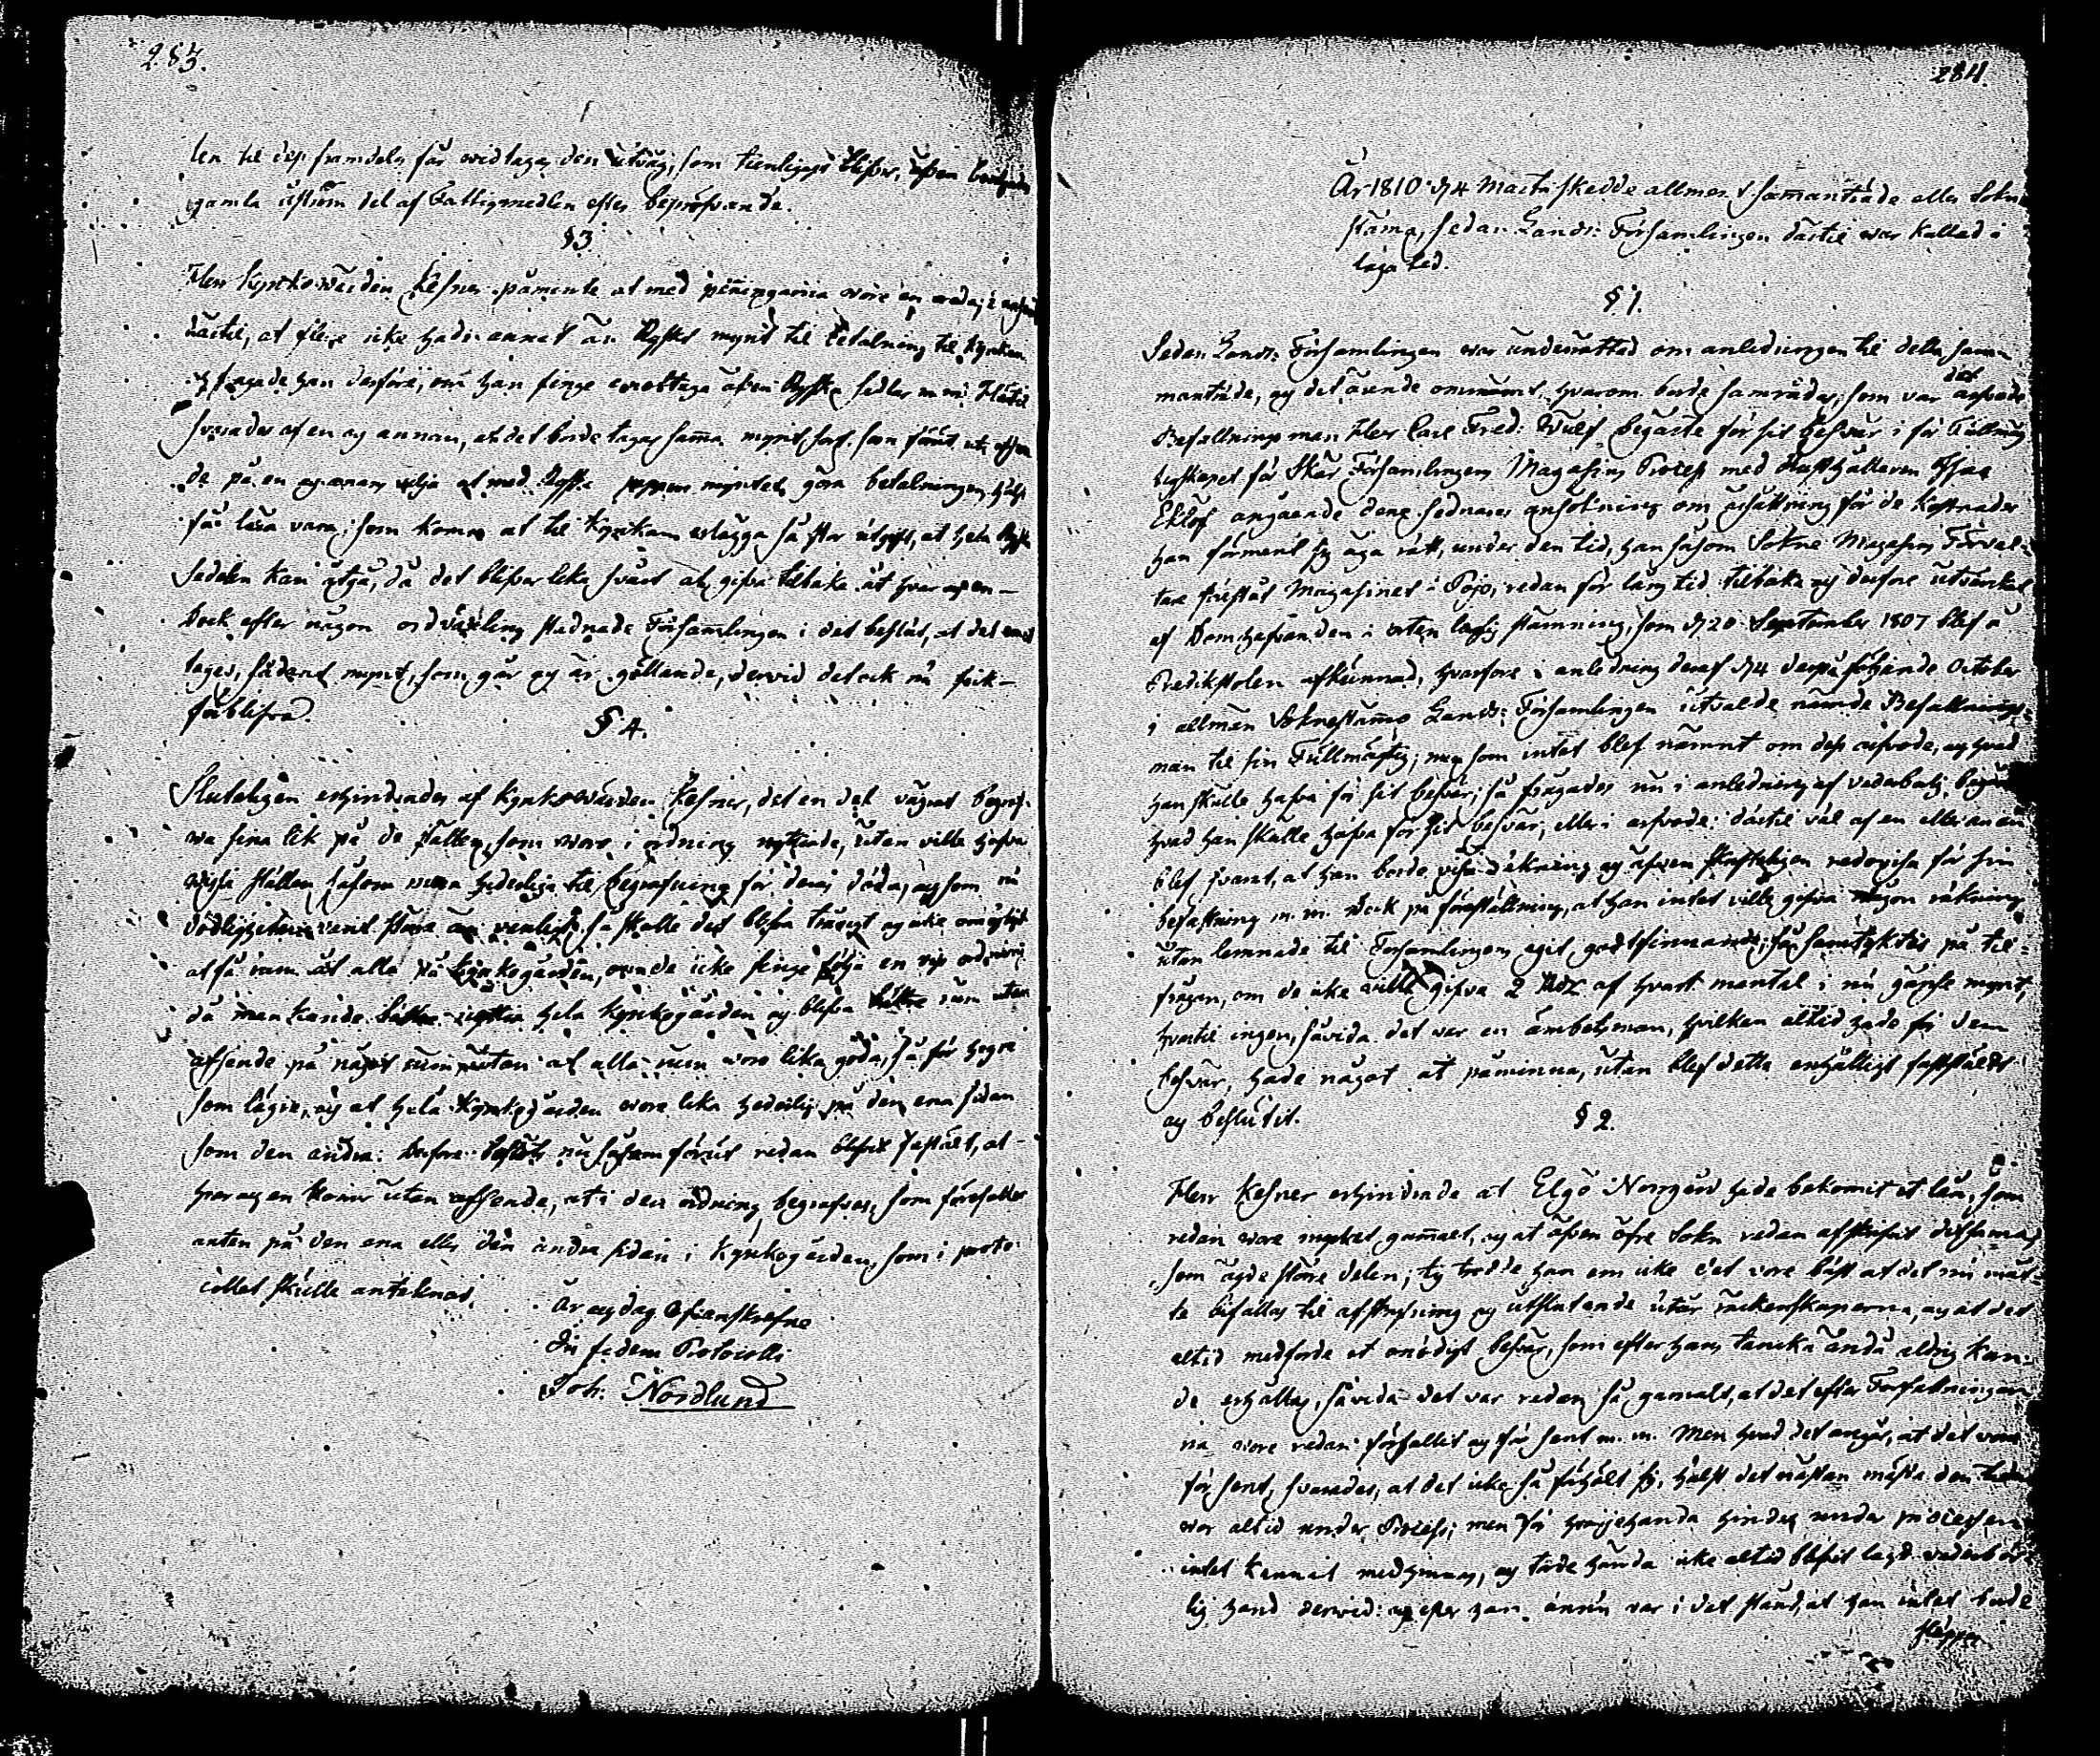 283.
len til dess framdeles får vidtagas den utväg, som tienligast blifver, äfven
gamla utur en del af Fattigmedlen efter bepröfvande.
§3
Herr Kyrkowärden Kefner påminte at med penningarna wore en oreda, i anse
därtil, at flere icke hade annat än Ryskt mynt til betalning til Kyrkan
och frågade han derföre, om han finge emottaga äfven Ryska sedlar m.m. Härtil
svarades af en och annan, at det borde tagas samma mynt
de på en och annans vilja at med Ryska mynted göra betalningen, hälst
få lära vara, som komma at til Kyrkan erlägga så stor utgift, at hela Ryska
Sedelen kan åtgå, då det blifver lika svårt at gifva tilbaka åt hvar och en –
Dock efter någon ordväxling stadnade Församlingen i det beslut, at det
tages, sådant mynt, som går och är gällande, dervid det ock nu fick –
förblifva.
§ 4.
Sluteligen erhindrades af Kyrkowärden Kefner, det en del vägrat begraf-
wa sina lik på de ställen, som wore i ordning, utan ville hafva
wissa ställen såsom mera hederliga til begrafning för deras döda, och som nu
dödligheten varit större än vanligt, så skulle det blifva trångt och icke omöjligt
at få rum åt alla på Kyrkogården, om de icke finge följa en viss ordning
då man kunde hela Kyrkogården och blifva rum utan
afseende på något rum, utan at alla rum woro lika goda, så för högre
som lägre, och at hela Kyrkogården wore lika hederlig på den ena sidan
som den andra: Derföre beslöts nu såsom förut redan blifvit faststält, at
hvar och en kommer utan afseende, at i den ordning begrafvas, som förefaller
anten på den ena eller den andra sidan i Kyrkogården, som i proto-
collet skulle antecknas.
År och dag ofvanskrefne
In fidem Protocolli
Joh. Nordlund
284
År 1810 d 4 Martii skedde allment sammanträde eller Sokne
stämma, sedan Lands: Församlingen därtil war kallad i
laga tid.
§ 1.
Sedan Lands: Församlingen war underrättad om anledningen til detta sam-
manträde, och det ärende omnämnt, hvarom borde samrådas, som var det arfvode
Befallningsman Herr Carl Fred: Wulf begärte för sit besvär i för Fullmäg
tigskapet för Skär Församlingens Magasins Process med Rusthållaren Isac
Eklöf angående dens sednares ansökning om ersättning för de kostnader
han förment sig äga rätt, under den tid, han såsom Sokne Magasins Förval-
tare förestått Magasinet i Pojo, redan för lång tid tilbaka och derföre utverkat
af Domhafvanden i orten laglig stämning, som d 20 September 1807 blef å
Predikstolen afkunnad, hvarföre i anledning deraf d 4 derpå följande October
i allmän Soknestämma Lands: Församlingen utvalde nämde Befallnings-
man til sin Fullmägtig; men som intet blef nämnt om dess arfvode, och hvad
han skulle hafva för sit besvär; så frågades nu i anledning af vederbörlig
hvad han skulle hafva för sit besvär, eller i arfvode: därtil väl af en eller annan
blef svarat, at han borde visa räkning och äfven skrifteligen redovisa för sin
befattning m. m. Dock på föreställning, at han intet ville gifva någon räkning
utan lemnade til Församlingens eget godtfinnande; så samtyktes på til-
frågan, om de icke ville gifva 2 Rdr af hvart mantal i nu gängse mynt,
hvartil ingen, såvida det var en ämbetsman, hvilken altid hade för dem
besvär, hade något at påminna, utan blef detta enhälligt fastställdt
och beslutit.
§ 2.
Herr Kefner erhindrade at Elgö Norrgård hade bekomit et lån, som
redan wore mycket gammalt, och at äfven öfre Sokn redan afskrifvit detsamma,
som ägde större delen; ty trodde han om icke det vore bäst at det nu måt-
te befallas til afskrifning och utslutende utur räckenskaperna, och at det
altid medförde et onödigt besvär, som efter hans tancka ändå aldrig kun-
de erhållas, såvida det var redan så gamalt, at det efter Författningar
na wore redan förfallit och för sent m. m. Men hvad det angår, at det vore
för sent, svarades, at det icke så förhölt sig, hälst det nästan mästa den tiden
war altid under Process; men för hvarjehanda hinder under processen
intet kunnat medhinnas, och torde hända icke altid blifvit lagd vederbör-
lig hand dervid: och efter han ännu var i det stånd, at han intet borde
släppa